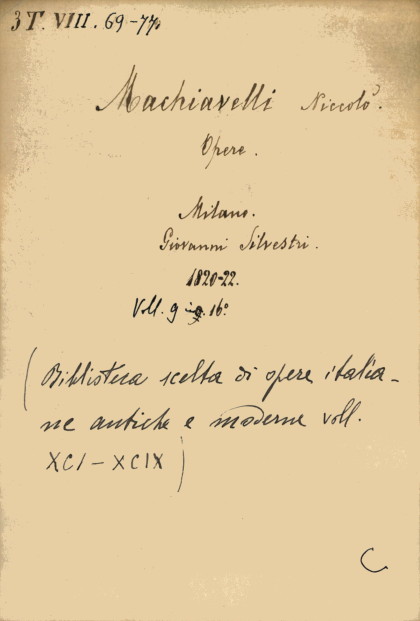 3 T. VIII. 69-77.
Machiavelli Niccolò.
Opere.
Milano.
Giovanni Silvestri.
1820-22.
Voll. 9 in 16º
(Biblioteca scelta di opere italia-
ne antiche e moderne voll.
XCI-XCIX)
C